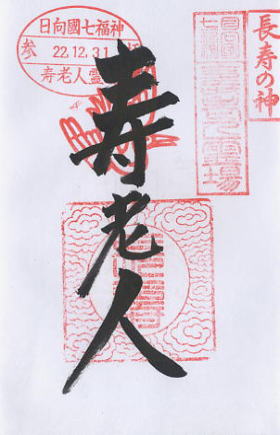 長寿の神
日向國七福神
参 22.12.31 拝
寿老人霊場
寿老人